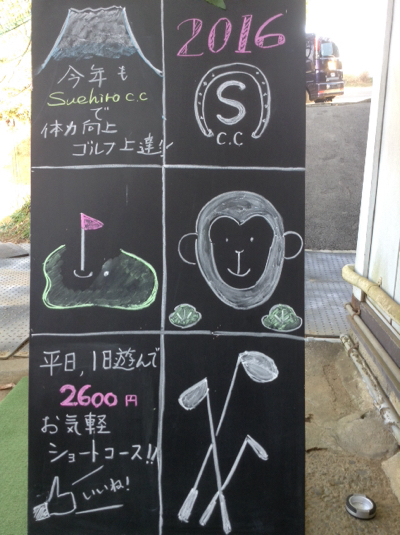 今年も
Suehiro c.c
で
体力向上
ゴルフ上達!!
2016
S
C.C
平日,1日遊んで
2600円
お気軽
ショートコース!!
いいね!